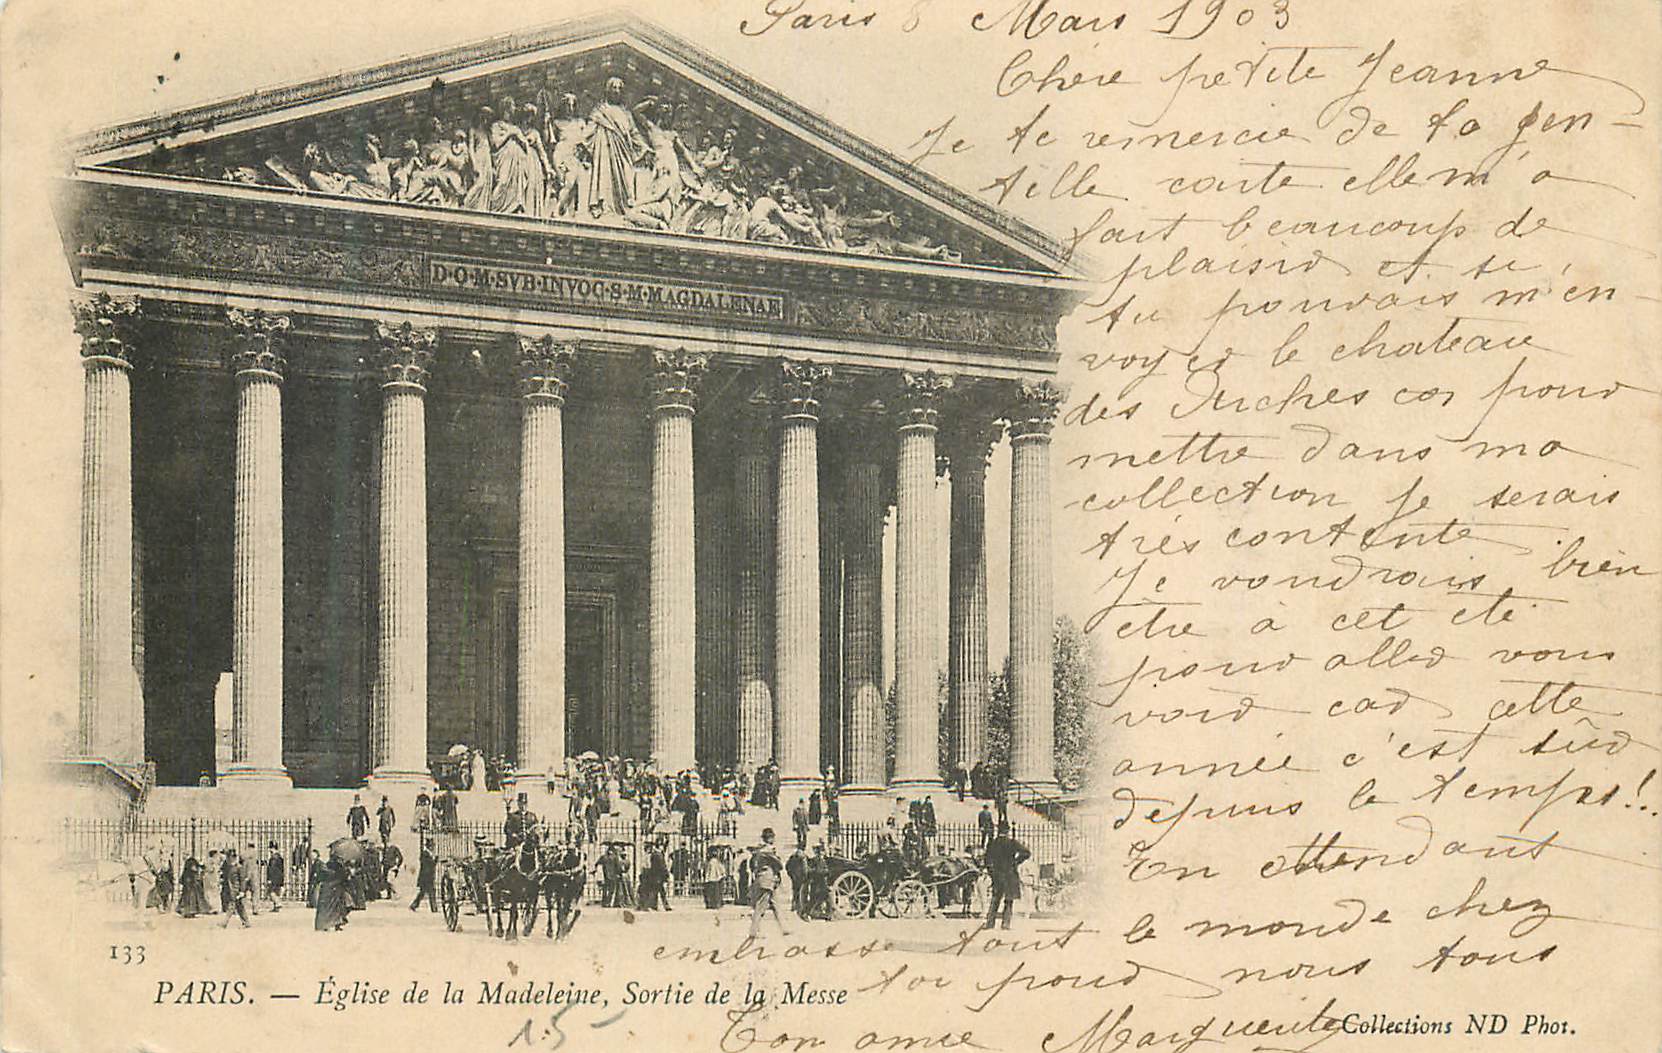 Paris 8 Mars 1903
Chère petite Jeanne
Je te remercie de ta gen-
tille carte elle m'a
fait beaucoup de
plaisir et si
tu pouvais m'en-
voyer le chateau
des Duches car pour
mettre dans ma
collection je serais
très contente
Je voudrais bien
être à cet été
pour aller vous
voir car cette
année c'est sûr
depuis le temps!..
En attendant
embrasse tout le monde chez
toi pour nous tous
Ton amie Marguerite
D·O·M·SVB·INVOC·S·M·MAGDALENAE
133
PARIS. — Église de la Madeleine, Sortie de la Messe
1.5-
Collections ND Phot.